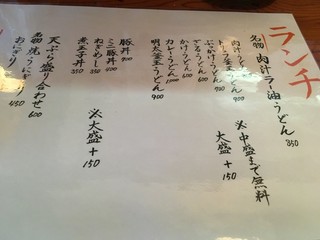 ランチ
名物 肉汁ラー油うどん 850
肉汁うどん
釜玉うどん
ぶっかけうどん
ざるうどん 600
かけうどん 600
カレーうどん 900
明太釜玉うどん 900
※中盛まで無料
大盛+150
豚丼 700
ミニ豚丼 400
ねぎめし 350
煮玉子丼 350
※大盛+150
天ぷら盛り合わせ 600
名物 焼うにぎり
おにぎり 450